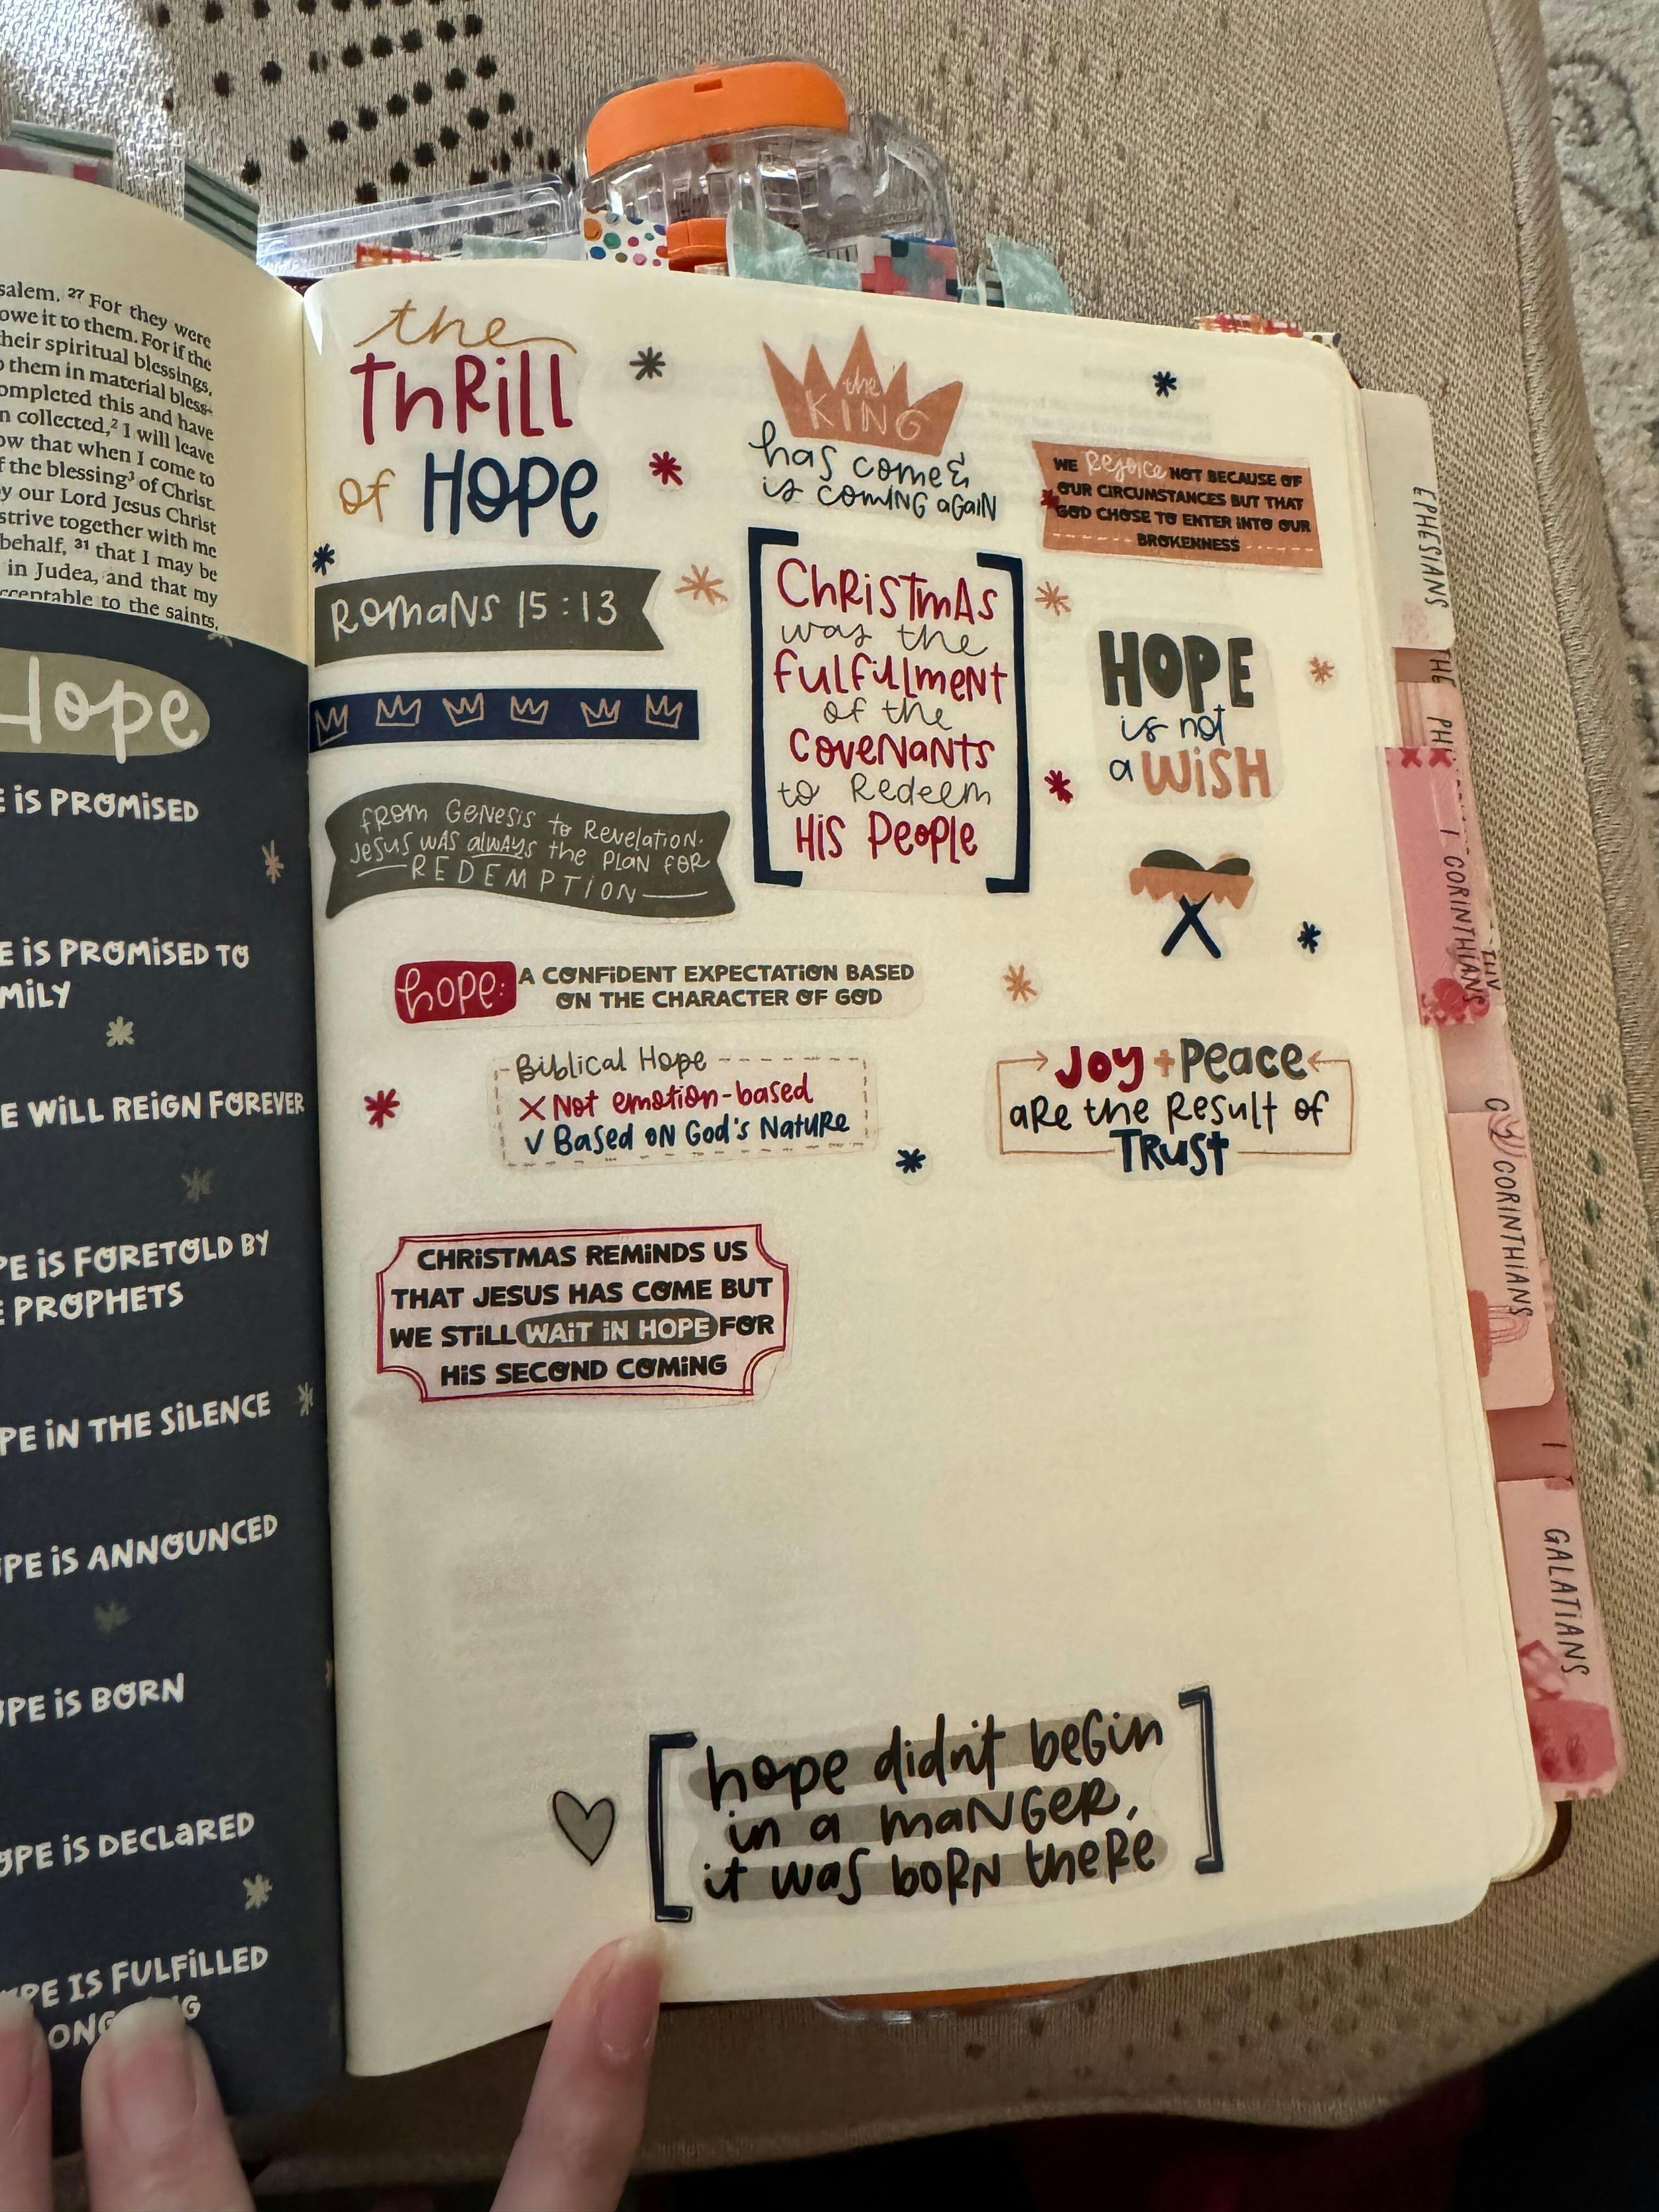 salem. 27 For they were
owe it to them. For if the
their spiritual blessings,
them in material bless-
completed this and have
n collected,2 I will leave
ow that when I come to
f the blessing3 of Christ.
by our Lord Jesus Christ
strive together with me
behalf, 31 that I may be
in Judea, and that my
cceptable to the saints,
Hope
E iS PROMiSED
E iS PROMiSED TO
MiLY
E WiLL REiGN FOREVER
PE iS FORETOLD BY
E PROPHETS
PE iN THE SiLENCE
OPE iS ANNOUNCED
OPE iS BORN
OPE iS DECLaRED
OPE IS FULFiLLED
the
ThRiLL
of HOPe
Romans 15:13
from Genesis to Revelation.
Jesus was always the plan for
REDEMPTION
the
KING
has come &
is coming again
WE Rejoice NOT BECAUSE OF
OUR CIRCUMSTANCES BUT THAT
GOD CHOSE TO ENTER INTO OUR
BROKENNESS
ChRisTmAs
was the
fulfillment
of the
Covenants
to Redeem
His People
HOPE
is not
a WiSH
hope: A CONFiDENT EXPECTATiON BASED
ON THE CHARACTER OF GOD
Biblical Hope
X Not emotion-based
√ Based on God's Nature
Joy + Peace
are the Result of
Trust
CHRiSTMAS REMiNDS US
THAT JESUS HAS COME BUT
WE STiLL WAiT iN HOPE FOR
HiS SECOND COMiNG
hope didn't begin
in a manger,
it was born there
EPHESIANS
1 CORINTHIANS
CORINTHIANS
GALATIANS